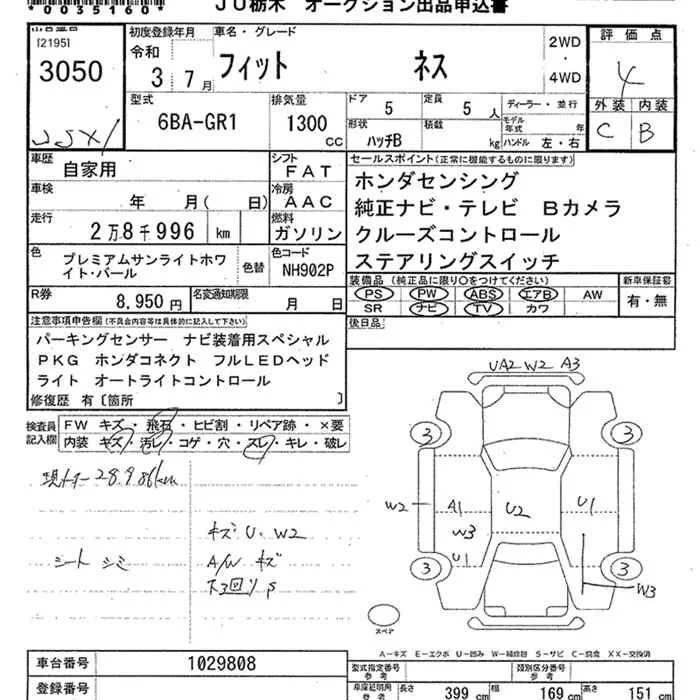 *0035160*
JU栃木 オークション出品申込書
[2195]
3050
初度登録年月
令和
3年7月
車名・グレード
フィット ネス
2WD
・
4WD
評価点
4
外装 内装
C B
型式
6BA-GR1
排気量
1300
cc
ドア
5
定員
5人
ディーラー・並行
形状
ハッチB
積載
kg
モデル年式 年
ハンドル 左・右
車歴
自家用
シフト
FAT
車検
年 月( 日)
冷房
AAC
走行
2万8千996 km
燃料
ガソリン
色
プレミアムサンライトホワイト・パール
色替
色コード
NH902P
R券
8,950円
名変通知期限
月 日
セールスポイント(正常に機能するものに限ります)
ホンダセンシング
純正ナビ・テレビ Bカメラ
クルーズコントロール
ステアリングスイッチ
装備品(純正品に限り○をつけてください)
新車保証書
PS PW ABS エアB AW
SR ナビ TV カワ
有・無
後日品
注意事項申告欄(不具合内容等は具体的に記入して下さい)
パーキングセンサー ナビ装着用スペシャル
PKG ホンダコネクト フルLEDヘッド
ライト オートライトコントロール
修復歴 有〔箇所 〕
検査員記入欄
FW キズ・飛石・ヒビ割・リペア跡・×要
内装 キズ・汚レ・コゲ・穴・スレ・キレ・破レ
キズ U. W2
シート シミ
A/W キズ
UA2 W2 A3
3 3
W2
A1 U2 U1
W3
U1
3 3
W3
スペア
A-キズ E-エクボ U-凹み W-補修跡 S-サビ C-腐食 XX-交換済
車台番号
1029808
登録番号
型式指定番号
参考
類別区分番号
参考
車庫証明用
参考
長さ 399 cm
幅 169 cm
高さ 151 cm